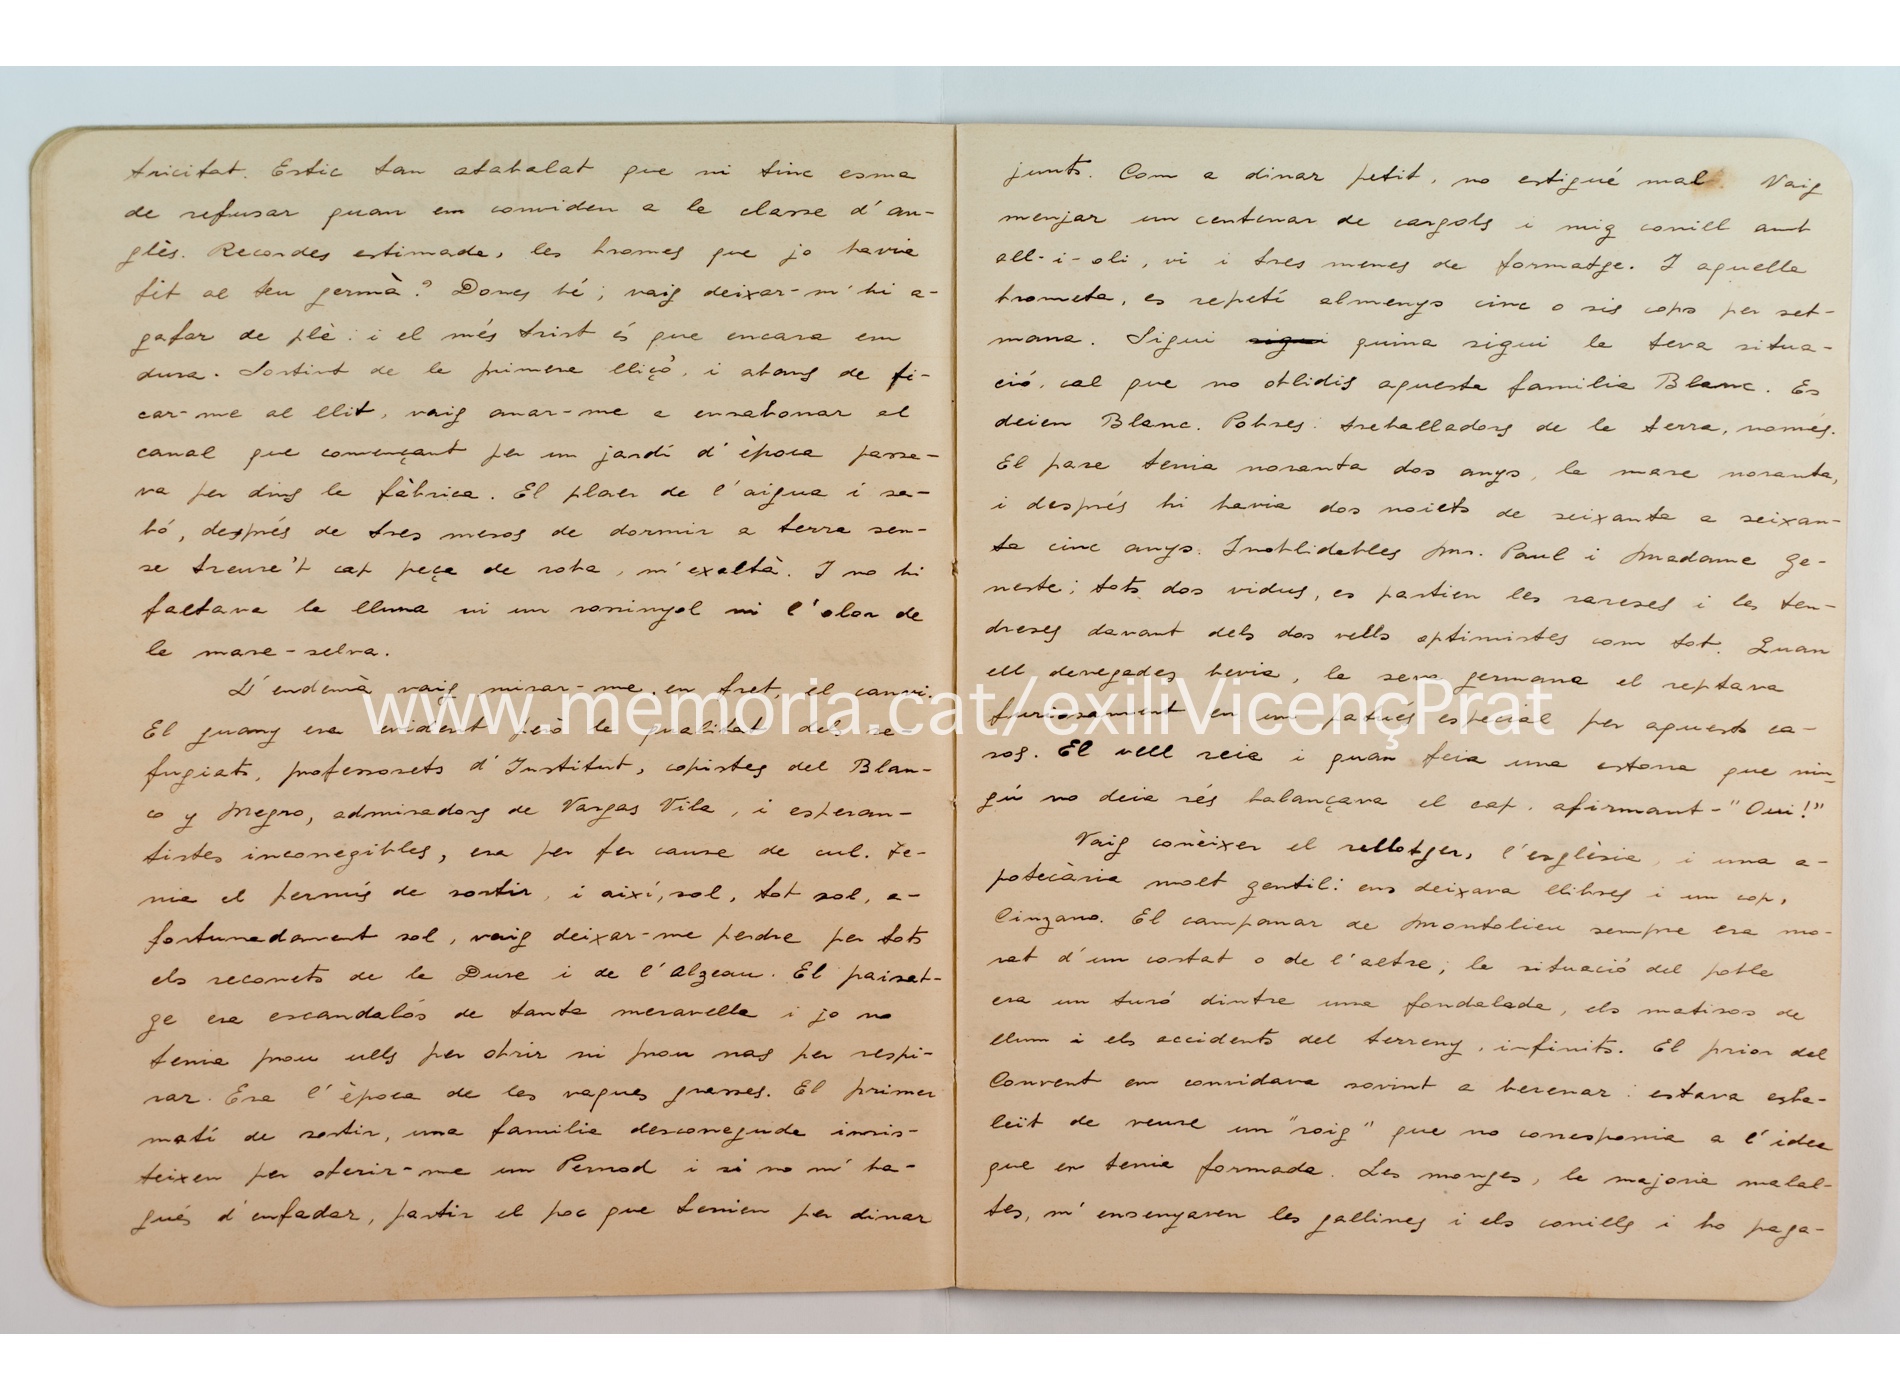 tricitat. Estic tan atabalat que ni tinc esma
de refusar quan em conviden a la classe d'an-
glès. Recordes estimada, les bromes que jo havia
fet al teu germà? Doncs bé; vaig deixar-m'hi a-
gafar de plè: i el més trist és que encara em
dura. Sortint de la primera lliçó, i abans de fi-
car-me al llit, vaig anar-me a ensabonar al
canal que començant per un jardí d'època passa-
va per dins la fàbrica. El plaer de l'aigua i sa-
bó, després de tres mesos de dormir a terra sen-
se treure't cap peça de roba, m'exaltà. I no hi
faltava la lluna ni un rossinyol ni l'olor de
la mare-selva.
L'endemà vaig mirar-me, en fret, el canvi.
El guany era evident però la qualitat dels re-
fugiats, professorets d'Institut, copistes del Blan-
co y Negro, admiradors de Vargas Vila, i esperan-
tistes incorregibles, era per fer caure de cul. Te-
nia el permís de sortir, i així, sol, tot sol, a-
fortunadament sol, vaig deixar-me perdre per tots
els reconets de la Dure i de l'Alzeau. El paisat-
ge era escandalós de tanta meravella i jo no
tenia prou ulls per obrir ni prou nas per respi-
rar. Era l'època de les vaques grasses. El primer
matí de sortir, una familia desconeguda insis-
teixen per oferir-me un Pernod i si no m'ha-
gués d'enfadar, partir el poc que tenien per dinar
junts. Com a dinar petit, no estigué mal. Vaig
menjar un centenar de cargols i mig conill amb
all-i-oli, vi i tres menes de formatge. I aquella
brometa, es repetí almenys cinc o sis cops per set-
mana. Sigui sigui quina sigui la teva situa-
ció, cal que no oblidis aquesta familia Blanc. Es
deien Blanc. Pobres: treballadors de la terra, només.
El pare tenia noranta dos anys, la mare noranta,
i després hi havia dos noiets de seixanta a seixan-
ta cinc anys. Inoblidables Mr. Paul i Madame Ge-
neste; tots dos vidus, es partien les rareses i les ten-
dreses davant dels dos vells optimistes com tot. Quan
ell denegades bevia, la seva germana el reptava
furiosament en un patués especial per aquests ca-
sos. El vell reia i quan feia una estona que nin-
gú no deia rés balançava el cap, afirmant-"Oui!"
Vaig conèixer el rellotger, l'esglèsia, i una a-
potecària molt gentil: ens deixava llibres i un cop,
Cinzano. El campanar de Montolieu sempre era mo-
rat d'un costat o de l'altre; la situació del poble
era un turó dintre una fondalada, els matisos de
llum i els accidents del terreny, infinits. El prior del
Convent em convidava sovint a berenar: estava esba-
laït de veure un "roig" que no corresponia a l'idea
que en tenia formada. Les monges, la majoria malal-
tes, m'ensenyaven les gallines i els conills i ho paga-
www.memoria.cat/exiliVicençPrat